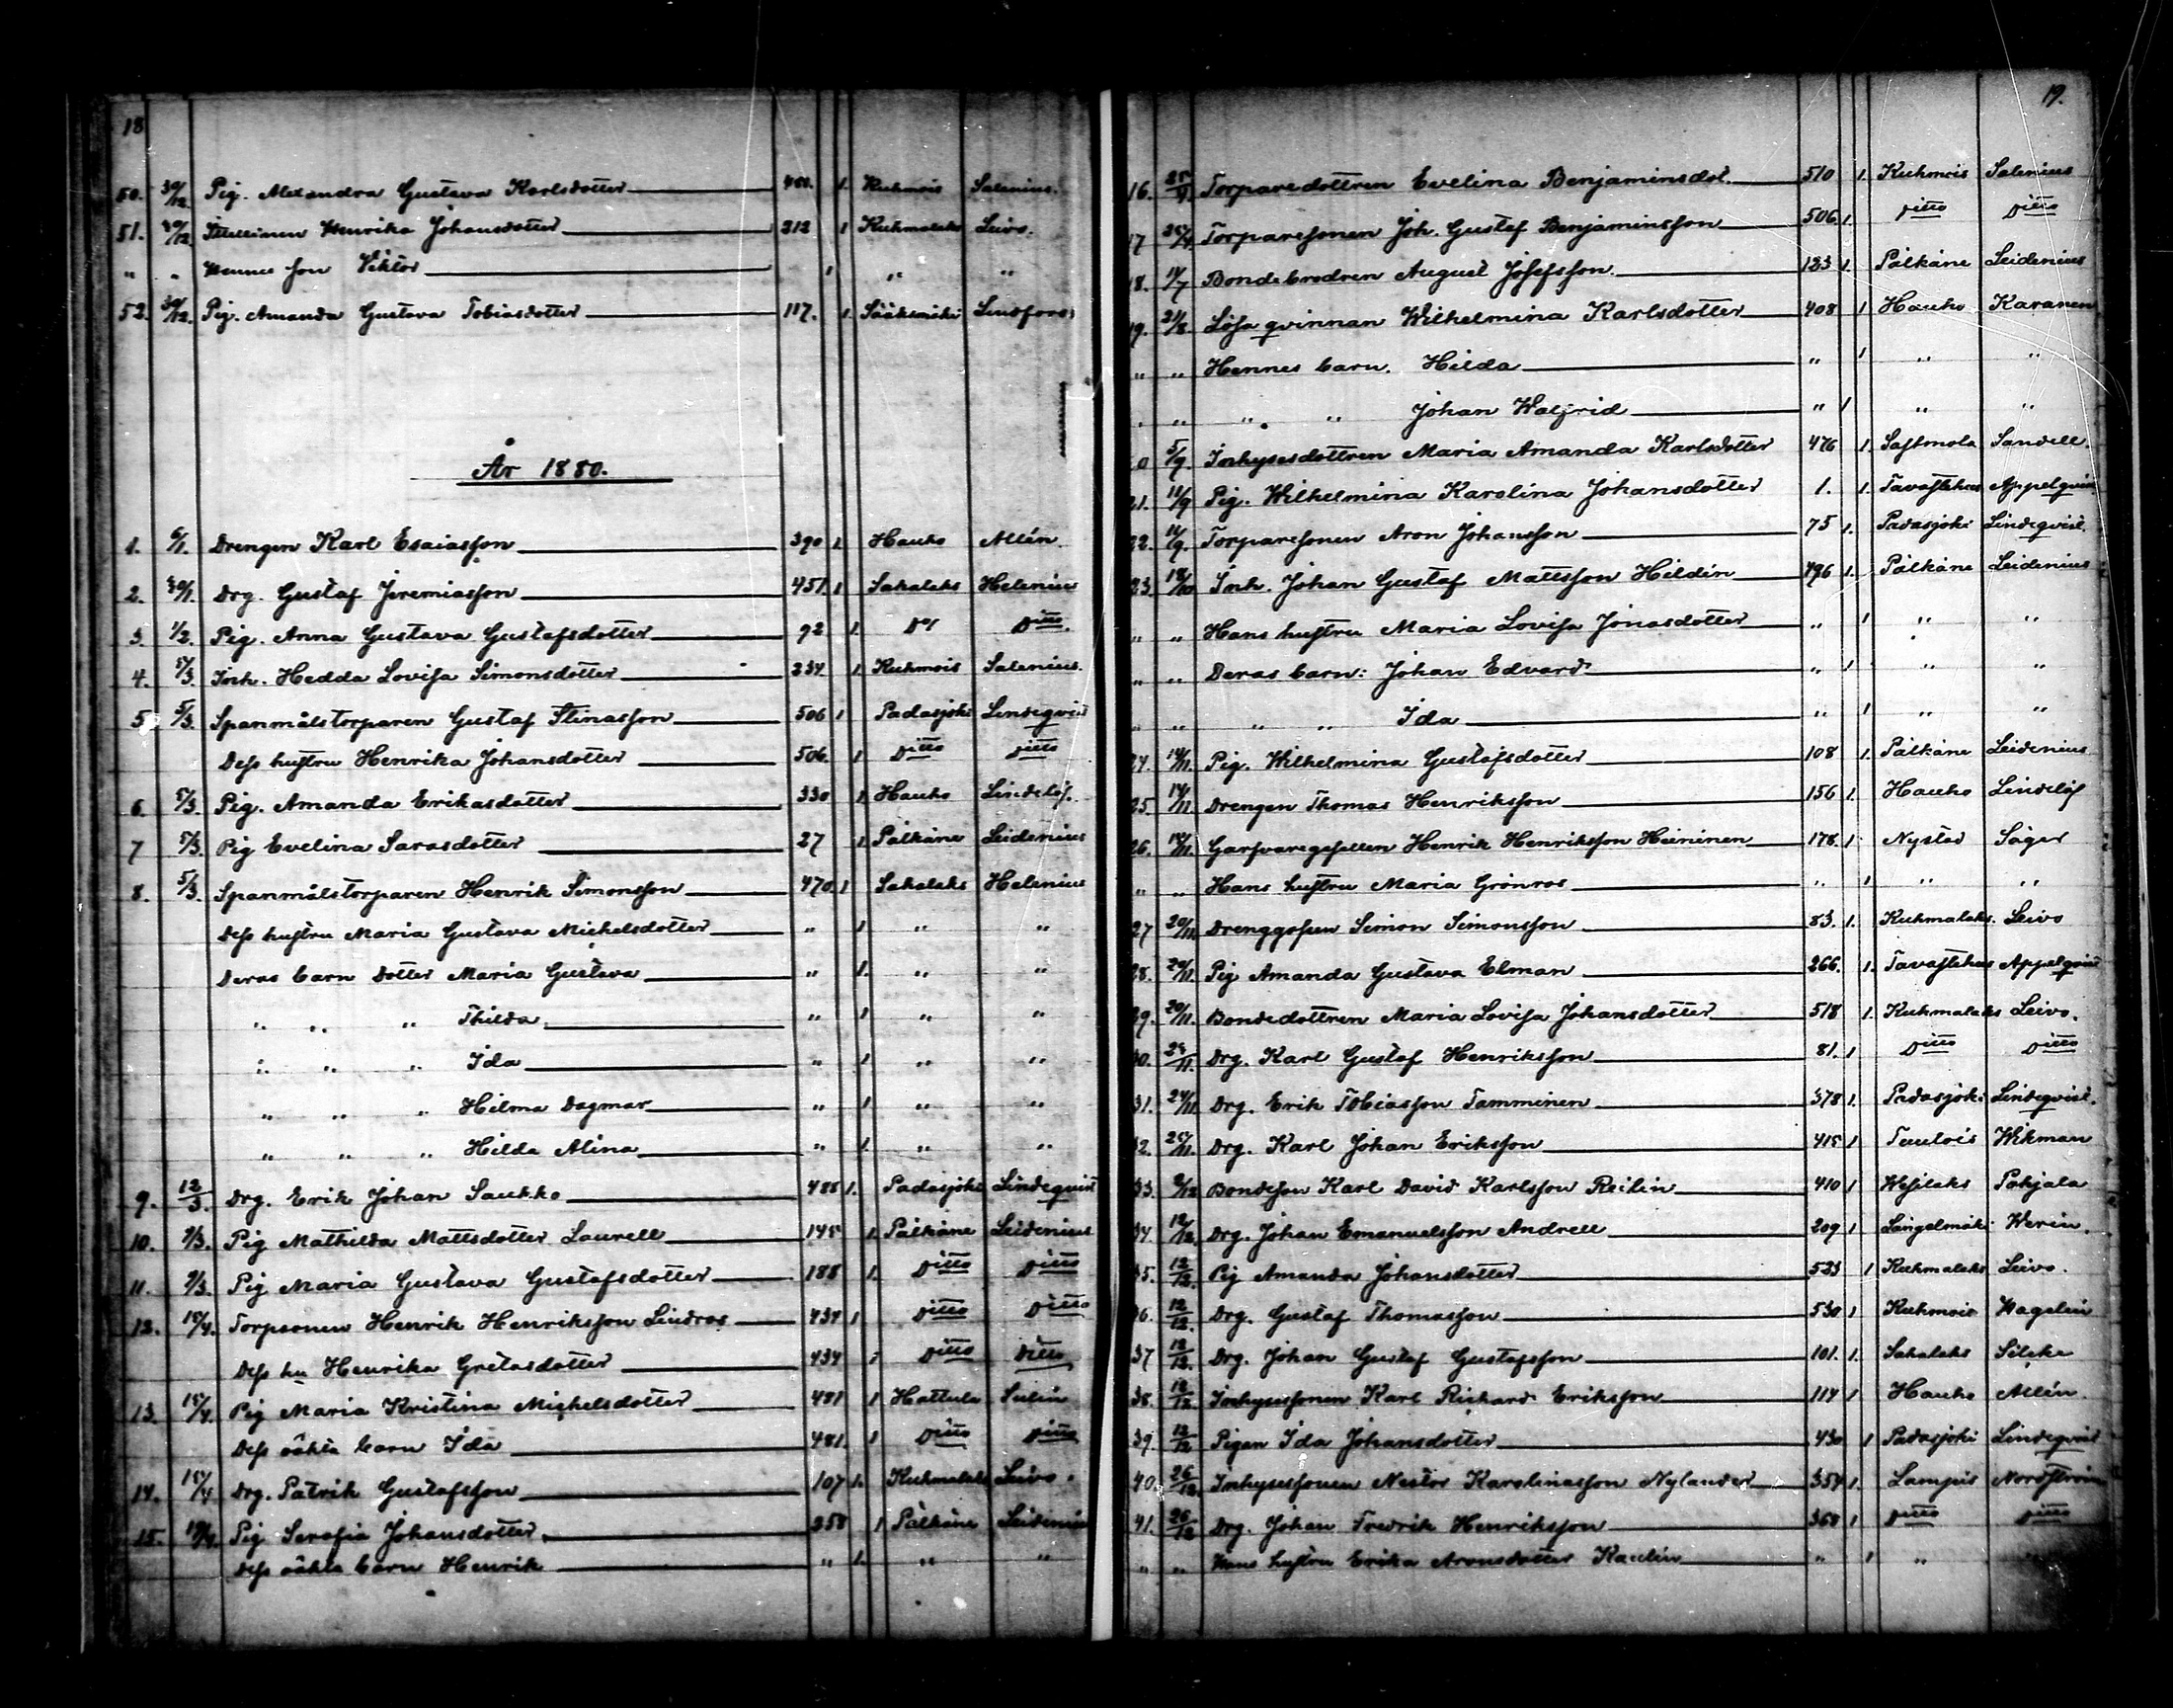 18
50. 30/12. Pig. Alexandra Gustava Karlsdotter 1. Kuhmois Salenius.
51. 30/12. Henrika Johansdotter 212 1 Kuhmalaks Leivo.
" " Hennes son Viktor 1 " "
52. 30/12. Pig. Amanda Gustava Tobiasdotter 117. 1. Sääksmäki Lindfors
År 1880.
1. 6/1. Drengen Karl Esaiasson 390 1. Hauho Allén
2. 20/1. Drg. Gustaf Jeremiasson 451 1 Sahalaks Helenius
3. 1/2. Pig. Anna Gustava Gustafsdotter 92 1. Do Ditto.
4. 5/3. Inh. Hedda Lovisa Simonsdotter 234 1. Kuhmois Salenius.
5. 5/3. Spanmålstorparen Gustaf Stinasson 506 1 Padasjoki Lindeqvist
Dess hustru Henrika Johansdotter 506. 1 Ditto Ditto
6. 5/3. Pig. Amanda Erikasdotter 330 1. Hauho Lindelöf.
7 5/3. Pig Evelina Sarasdotter 27 1. Pälkäne Leidenius
8. 5/3. Spanmålstorparen Henrik Simonsson 470. 1 Sahalaks Helenius
Dess hustru Maria Gustava Michelsdotter " 1 " "
Deras barn dotter Maria Gustava " 1. " "
" " " Thilda " 1 " "
" " " Ida " 1 " "
" " " Hilma Dagmar " 1 " "
" " " Hilda Alina " 1. " "
9. 12/3. Drg. Erik Johan Saukko 488 1. Padasjoki Lindeqvist
10. 9/3. Pig Mathilda Mattsdotter Laurell 145 1. Pälkäne Leidenius
11. 9/3. Pig Maria Gustava Gustafsdotter 188 1. Ditto Ditto
12. 15/4. Torpsonen Henrik Henriksson Lindros 434 1 Ditto Ditto
Dess hu Henrika Gretasdotter 434 1 Ditto Ditto
13. 15/4. Pig Maria Kristina Michelsdotter 481 1 Hattula Sulin
Dess oäkta barn Ida 481. 1 Ditto Ditto
14. 15/4 Drg. Patrik Gustafsson 107 1. Kuhmalaks Leivo.
15. Pig Serafia Johansdotter. 258 1 Pälkäne Leidenius
Dess oäkta barn Henrik " 1. " "
19.
16. 25/4. Torparedottren Evelina Benjaminsdot. 510 1. Kuhmois Salenius
17 25/4 Torparesonen Joh. Gustaf Benjaminsson 506. 1. Ditto Ditto
18. 11/7 Bondebrodren August Josefsson. 123 1. Pälkäne Leidenius
19. 21/8. Lösa qvinnan Wilhelmina Karlsdotter 408 1 Hauho Karanen
" " Hennes barn. Hilda " 1 " "
" " " Johan Walfrid " 1 " "
0 5/9. Inhysesdottren Maria Amanda Karlsdotter 476 1. Sastmola Sandell.
21. 11/9 Pig. Wilhelmina Karolina Johansdotter 1. 1. Tavastehus Appelqvist
22. 11/9. Torparesonen Aron Johansson 75 1. Padasjoki Lindeqvist.
23. 18/10 Inh. Johan Gustaf Mattsson Hildén 496 1. Pälkäne Leidenius
" " Hans hustru Maria Lovisa Jonasdotter " 1 " "
" " Deras barn: Johan Edvard " 1 " "
" " " " Ida " 1 " "
24. 14/11. Pig. Wilhelmina Gustafsdotter 108 1. Pälkäne Leidenius
25. 14/11 Drengen Thomas Henriksson 156 1. Hauho Lindelöf
26. 14/11. Garfvaregesellen Henrik Henriksson Heininen 178. 1 Nystad Säger
" " Hans hustru Maria Grönros " 1 " "
27 20/11. Drenggossen Simon Simonsson 83. 1. Kuhmalaks. Leivo
28. 20/11. Pig Amanda Gustava Elman 266. 1. Tavastehus Appelqvist
29. 20/11. Bondedottren Maria Lovisa Johansdotter 518 1. Kuhmalaks Leivo.
30. /11. Drg. Karl Gustaf Henriksson 81. 1 Ditto Ditto
31. 24/11. Drg. Erik Tobiasson Tamminen 378 1. Padasjoki Lindeqvist.
32. 25/11. Drg. Karl Johan Eriksson 415 1 Tuulois Wikman
33. /12 Bondeson Karl David Karlsson Reilin 410 1 Wesilaks Pohjala
34. 12/12. Drg. Johan Emanuelsson Andrell 209 1 Längelmäki Werin.
35. 12/12. Pig Amanda Johansdotter 533 1 Kuhmalaks Leivo.
36. 12/12. Drg. Gustaf Thomasson 530 1 Kuhmois Wagelin
37 12/12. Drg. Johan Gustaf Gustafsson 101. 1. Sahalaks
38. 12/12 Inhysessonen Karl Richard Eriksson 114 1 Hauho Allén.
39. 12/12 Pigan Ida Johansdotter 430 1 Padasjoki Lindeqvist
40. 26/12. Inhysessonen Nestor Karolinasson Nylander 354 1. Lampis Nordström
41. 26/12 Drg. Johan Fredrik Henriksson 368 1 Ditto Ditto
" " Hans hustru Erika Aronsdotter Kaulin " 1 "